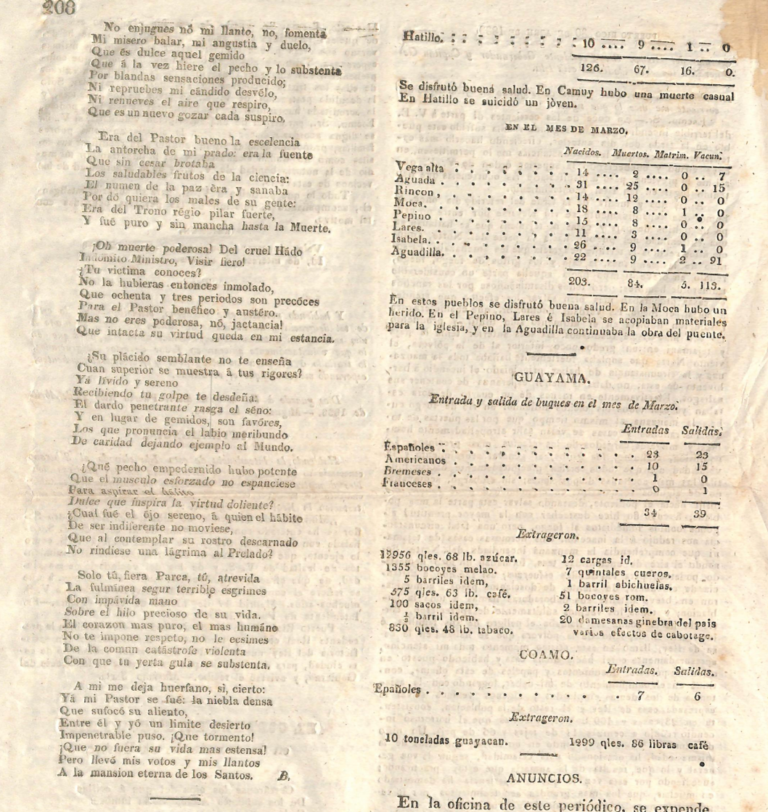 208
No enjugues nó mi llanto, no, fomenta
Mi misero balar, mi angustia y duelo,
Que és dulce aquel gemido
Que á la vez hiere el pecho y lo substenta
Por blandas sensaciones producido;
Ni repruebes mi cándido desvélo,
Ni renueves el aire que respiro,
Que es un nuevo gozar cada suspiro.
Era del Pastor bueno la escelencia
La antorcha de mi prado: era la fuente
Que sin cesar brotaba
Los saludables frutos de la ciencia:
El numen de la paz éra y sanaba
Por dó quiera los males de su gente:
Era del Trono régio pilar fuerte,
Y fué puro y sin mancha hasta la Muerte.
¡Oh muerte poderosa! Del cruel Hádo
Indómito Ministro, Visir fiero!
¿Tu victima conoces?
No la hubieras entonces inmolado,
Que ochenta y tres periodos son precóces
Para el Pastor benéfico y austéro.
Mas no eres poderosa, nó, jactancia!
Que intacta su virtud queda en mi estancia.
¿Su plácido semblante no te enseña
Cuan superior se muestra á tus rigores?
Yá lívido y sereno
Recibiendo tu golpe te desdeña:
El dardo penetrante rasga el séno:
Y en lugar de gemidos, son favóres,
Los que pronuncia el labio moribundo
De caridad dejando ejemplo al Mundo.
¿Qué pecho empedernido hubo potente
Que el musculo esforzado no espanciese
Para aspirar el hálito
Dulce que suspira la virtud doliente?
¿Cual fué el ójo sereno, á quien el hábito
De ser indiferente no moviese,
Que al contemplar su rostro descarnado
No rindiese una lágrima al Prelado?
Solo tú, fiera Parca, tú, atrevida
La fulminea segur terrible esgrimes
Con impávida mano
Sobre el hilo precioso de su vida.
El corazon mas puro, el mas humáno
No te impone respeto, no le ecsimes
De la comun catástrofe violenta
Con que tu yerta gula se substenta.
A mi me deja huerfano, si, cierto:
Yá mi Pastor se fué: la niebla densa
Que sufocó su aliento,
Entre él y yó un limite desierto
Impenetrable puso. ¡Que tormento!
¡Que no fuera su vida mas estensa!
Pero llevó mis votos y mis llantos
A la mansion eterna de los Santos. B.
Hatillo. . . . . . . . 10 .... 9 .... 1 .. 0
126. 67. 16. 0.
Se disfrutó buena salud. En Camuy hubo una muerte casual
En Hatillo se suicidó un jòven.
EN EL MES DE MARZO.
Nacidos. Muertos. Matrim. Vacun.
Vega alta . . . . . . . 14 .... 2 .... 0 .. 7
Aguada . . . . . . . 31 .... 25 .... 0 .. 15
Rincon , . . . . . . . 14 .... 12 .... 0 .. 0
Moca. . . . . . . . 18 .... 8 .... 1 .. 0
Pepino . . . . . . . 15 .... 8 .... 0 .. 0
Lares. . . . . . . . 11 .... 3 .... 0 .. 0
Isabela. . . . . . . . 26 .... 9 .... 1 .. 0
Aguadilla. . . . . . . 22 .... 9 .... 2 .. 91
203. 84. 5. 113.
En estos pueblos se disfrutó buena salud. En la Moca hubo un
herido. En el Pepino, Lares é Isabela se acopiaban materiales
para la iglesia, y en la Aguadilla continuaba la obra del puente.
GUAYAMA.
Entrada y salida de buques en el mes de Marzo.
Entradas Salidas.
Españoles . . . . . . . . . 23 23
Americanos . . . . . . . . . 10 15
Bremeses . . . . . . . . . 1 0
Franceses . . . . . . . . . 0 1
34 39
Extrageron.
12956 qles. 68 lb. azúcar.
1355 bocoyes melao.
5 barriles idem,
575 qles. 63 lb. café.
100 sacos idem,
½ barril idem.
830 qlcs. 48 lb. tabaco.
12 cargas id.
7 quintales cueros.
1 barril abichuelas.
51 bocoyes rom.
2 barriles idem.
20 damesanas ginebra del pais
varios efectos de cabotage.
COAMO.
Entradas. Salidas.
Epañoles . . . . . . . . . . 7 6
Extrageron.
10 toneladas guayacan.
1299 qles. 86 libras café
ANUNCIOS.
En la oficina de este periódico, se expende